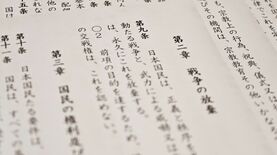 も、宗教上の行為、祝典、儀式又
びその機関は、宗教教育その他いかな
第二章 戦争の放棄
第九条 日本国民は、正義と秩序を
動たる戦争と、武力による威嚇
は、永久にこれを放棄する。
〇2 前項の目的を達するため、
の交戦権は、これを認めない。
第三章 国民の権利及
第十条 日本国民たる要件は、
第十一条 国民は、すべ